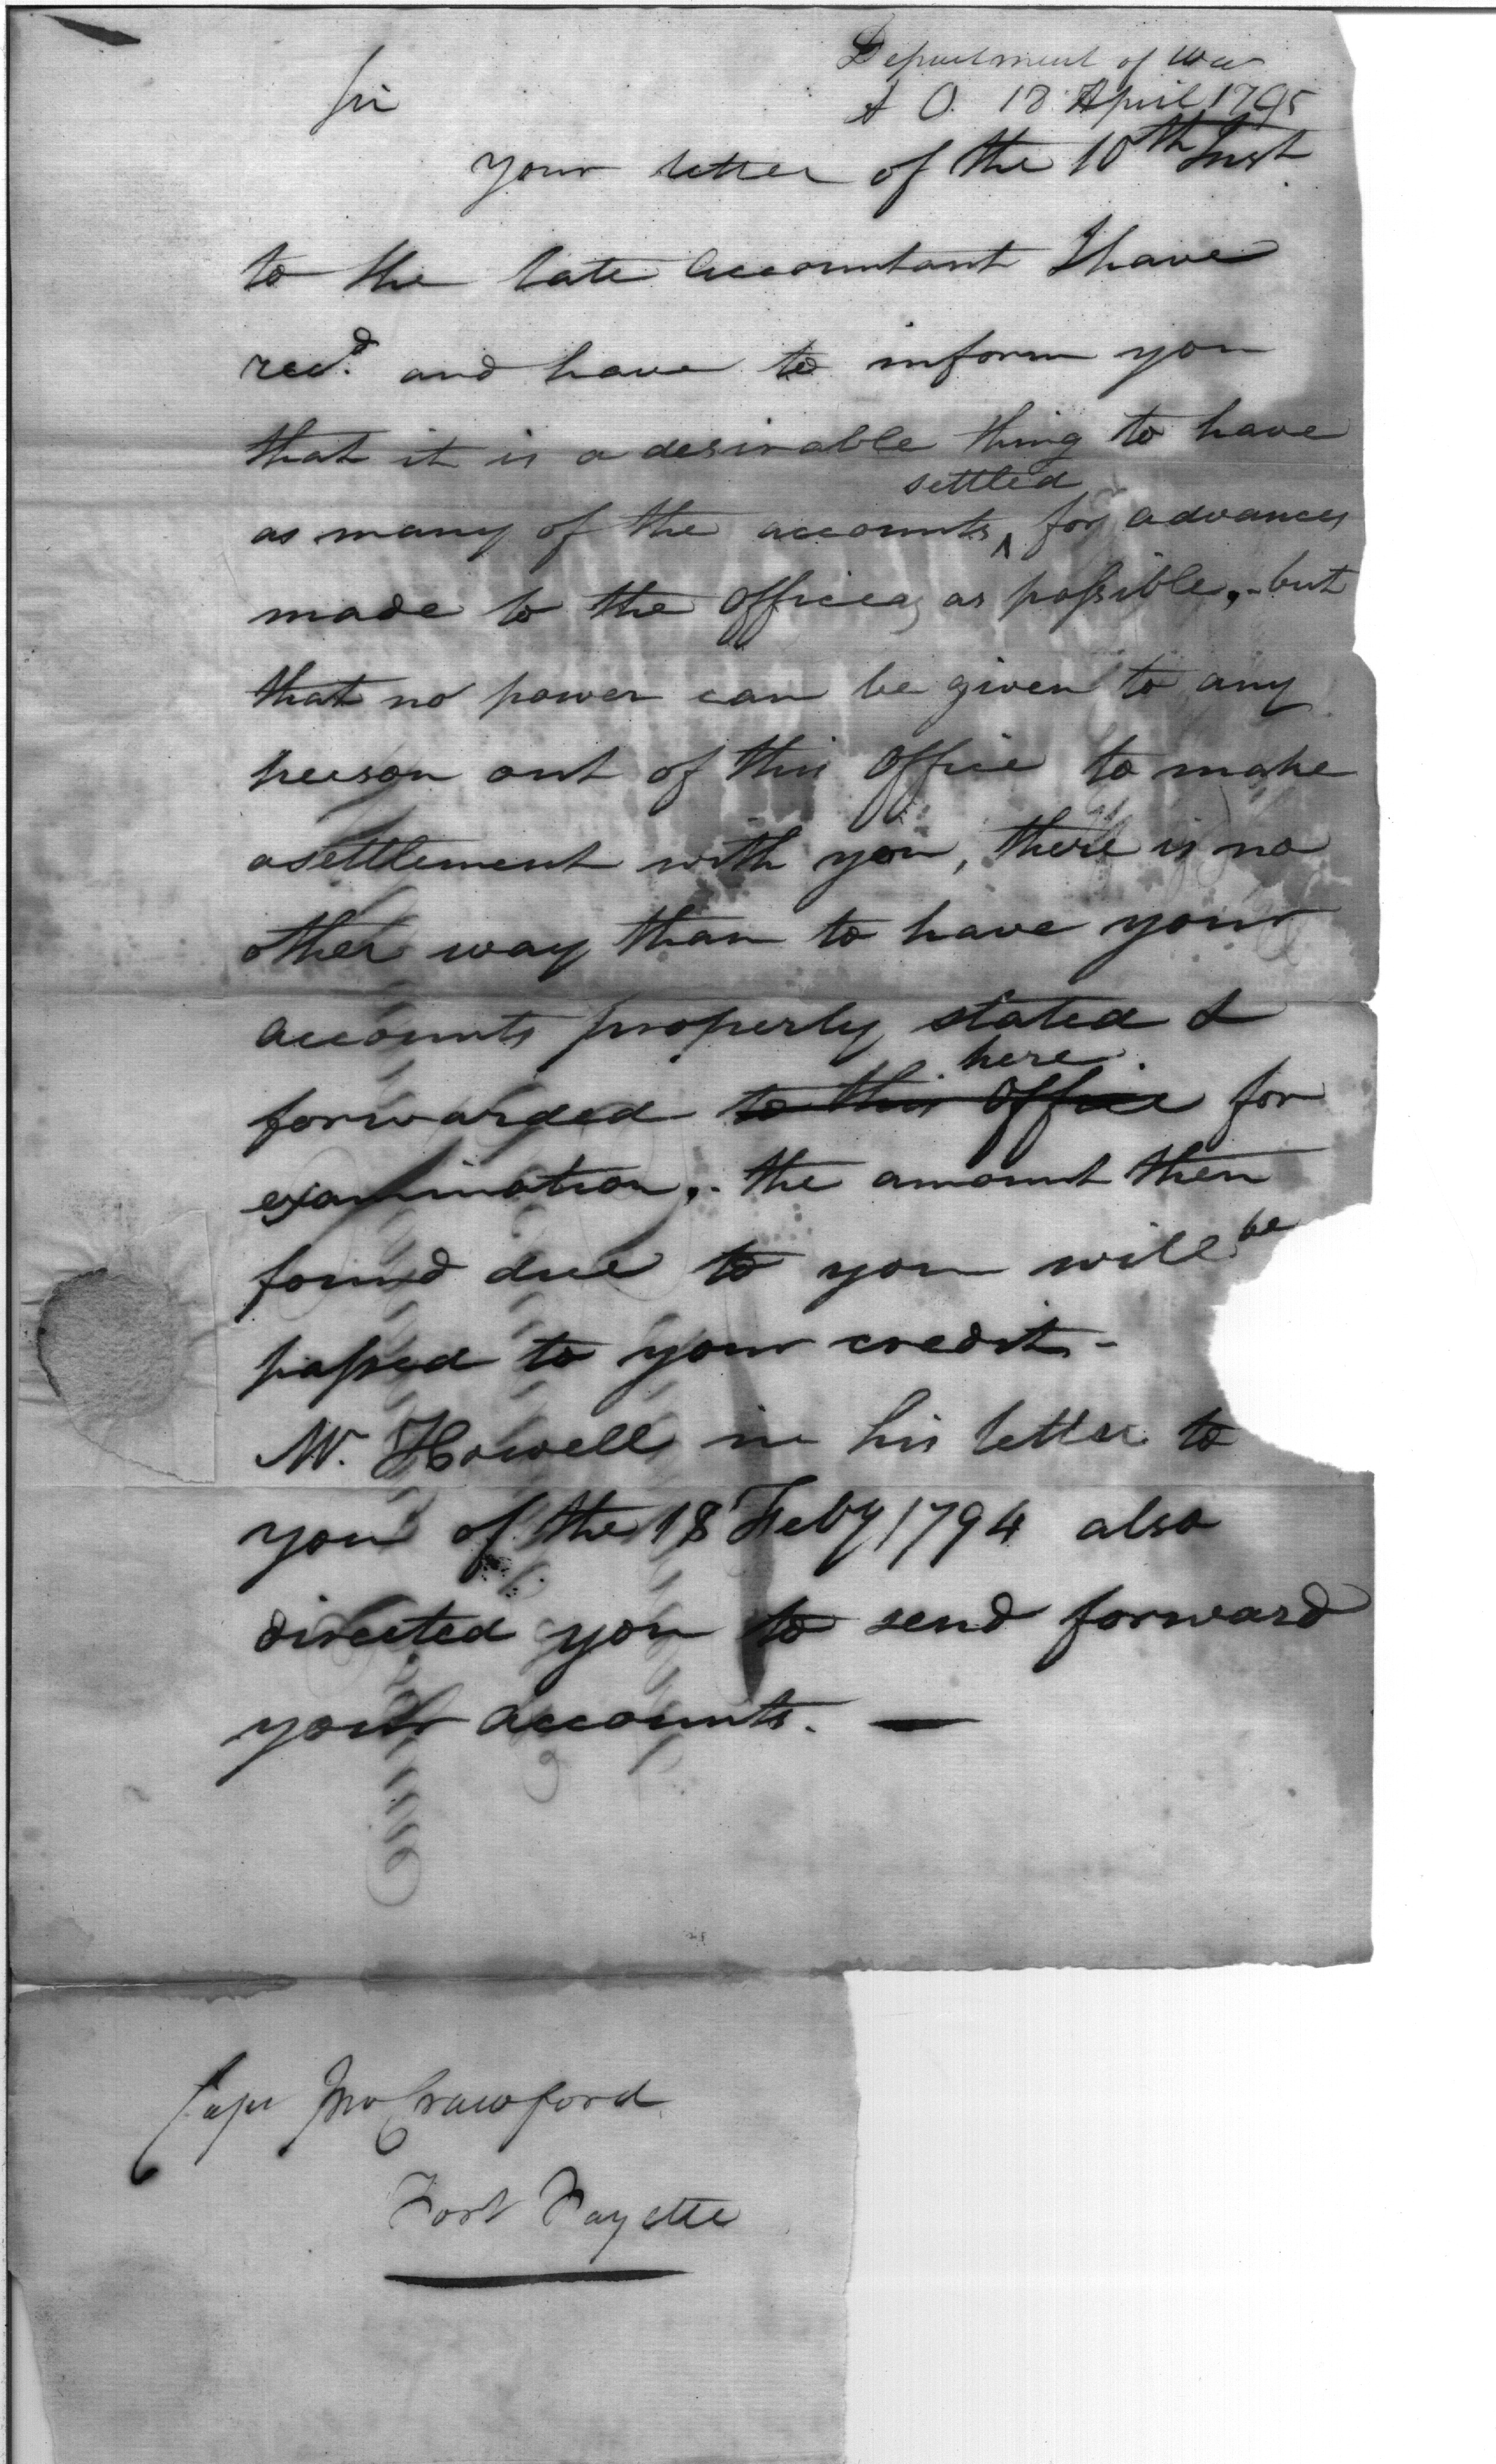 Department of War
A O. 18 April 1795
Sir
your letter of the 10th Inst
to the late Accountant I have
recd. and have to inform you
that it is a desirable thing to have
settled
as many of the accounts ^ for advances
made to the Officers as possible,- but
that no power can be given to any
person out of this Office to make
a settlement with you, there is no
other way than to have your
accounts properly stated &
here
forwarded to this Office for
examination,- the amount then
found due to you will be
passed to your credit-
Mr. Howell in his letter to
you of the 18 Feby 1794 also
directed you to send forward
your accounts. —
Capt Jno Crawford
Fort Fayette